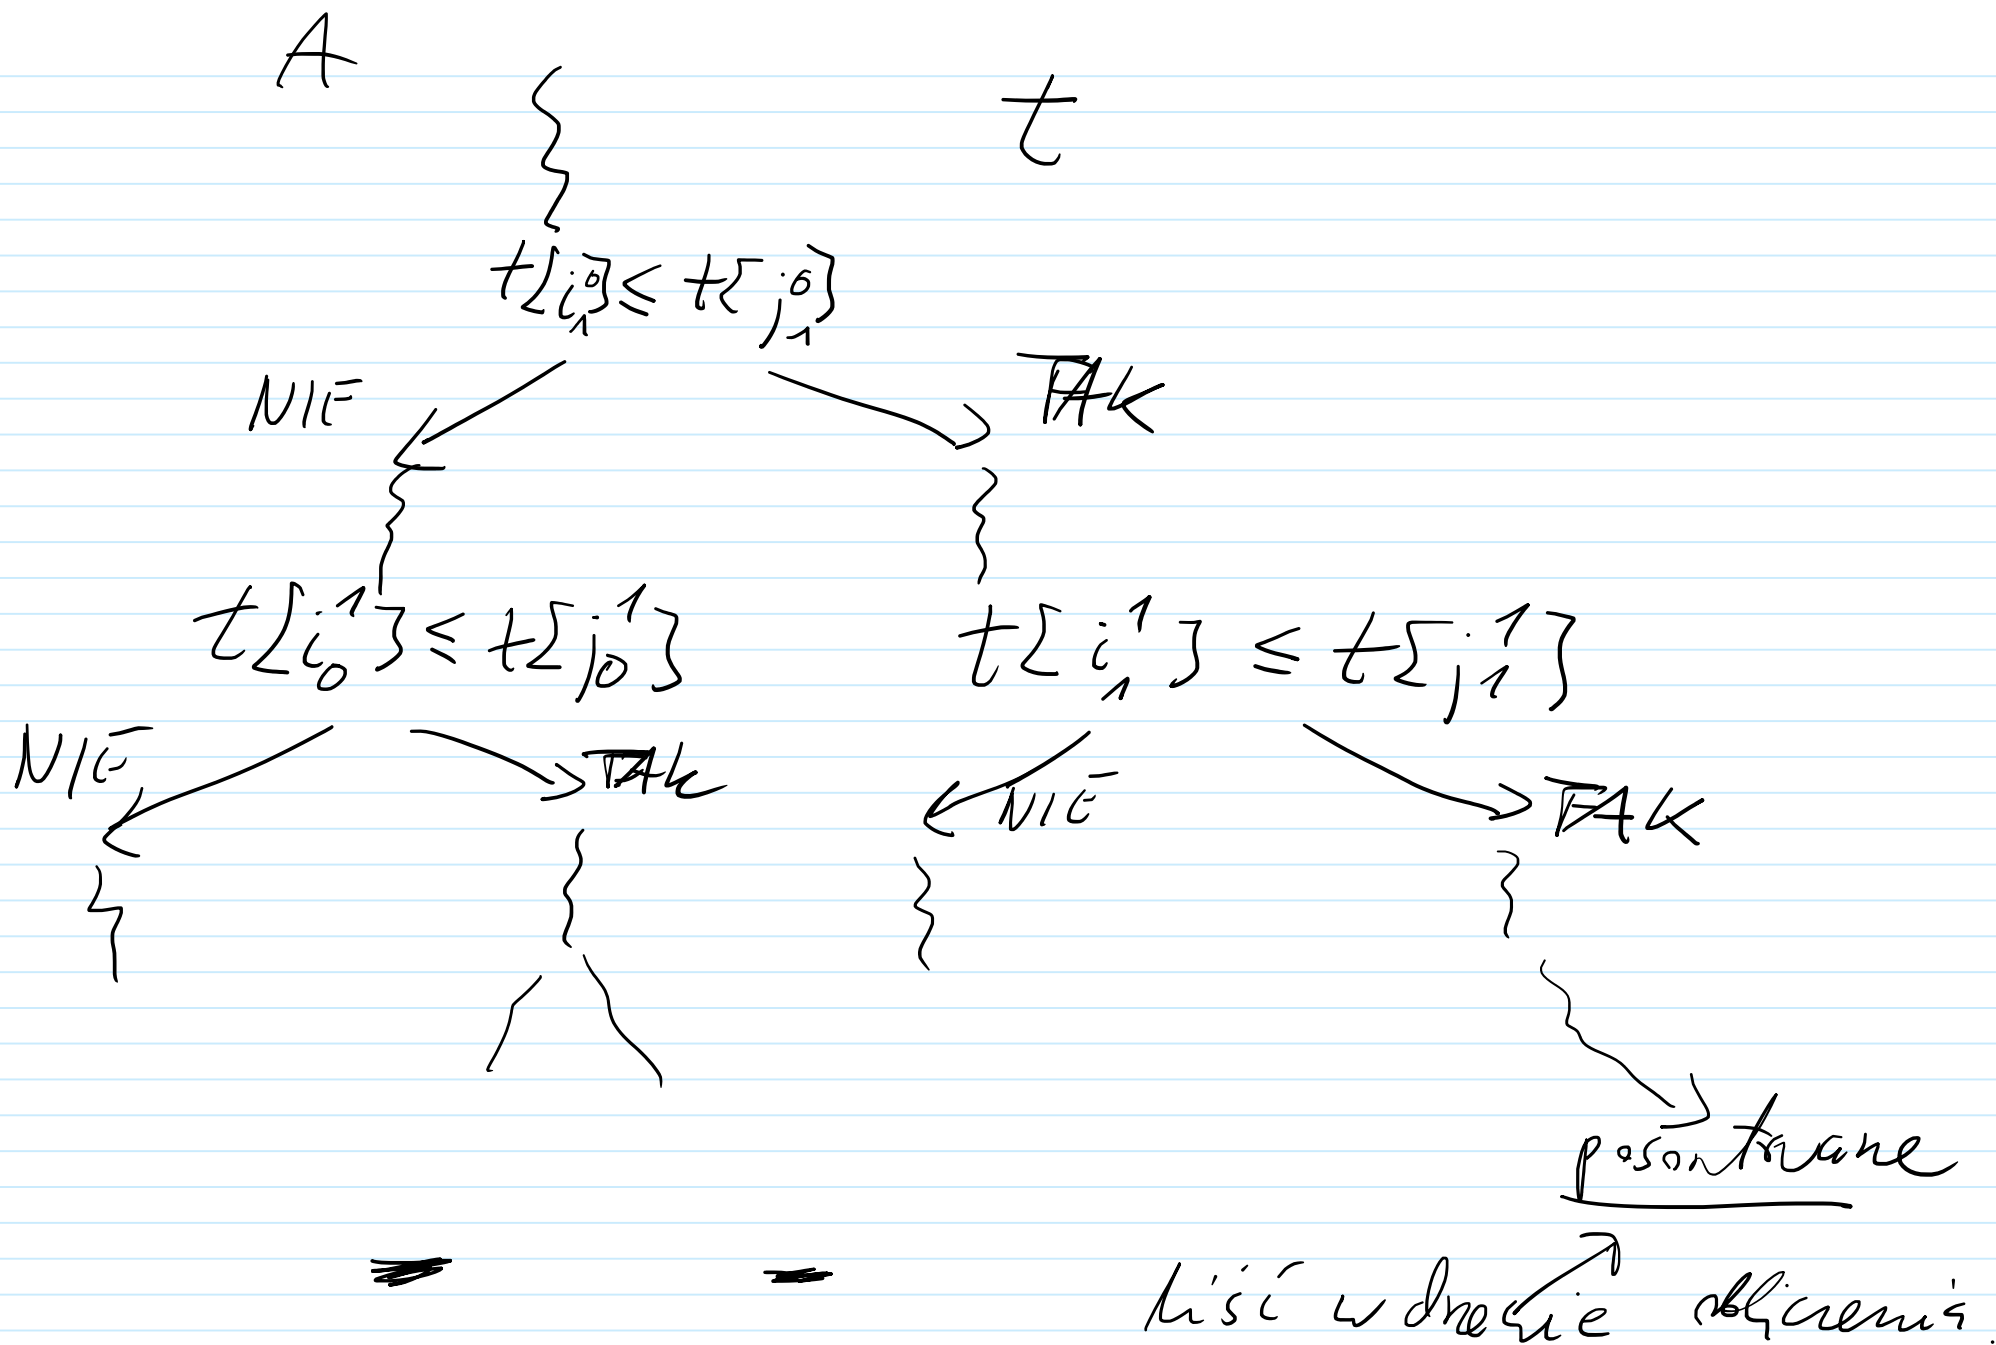 A t
t[i₁⁰] ≤ t[j₁⁰]
NIE TAK
t[i₀¹] ≤ t[j₀¹] t[i₁¹] ≤ t[j₁¹]
NIE TAK NIE TAK
posortowane
liść w drzewie obliczenia.